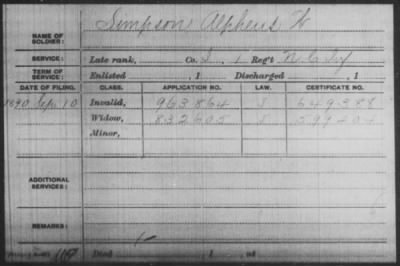 NAME OF SOLDIER: Simpson Alpheus W
SERVICE: Late rank, Co. I, 1 Reg't N.C. Inf
TERM OF SERVICE: Enlisted , 1 Discharged , 1
DATE OF FILING. CLASS. APPLICATION NO. LAW. CERTIFICATE NO.
1890 Sep. 10 Invalid, 963864 S 649388
Widow, 832605 S 599404
Minor,
ADDITIONAL SERVICES:
REMARKS:
Died , 1 , at